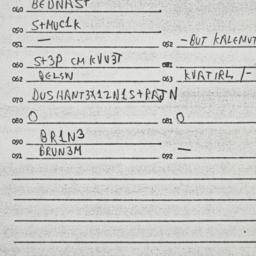 040 BEDNAST
050 S+MUC1K
051 — 052 -BUT KALEMUT
060 S+3P CM KVU3T 061
062 QELSN 063 KVATIRL /-
070 DUSHANT3X12N1S+PRJN
080 O 081 O
090 BR1N3
091 BRUN3M 092 —